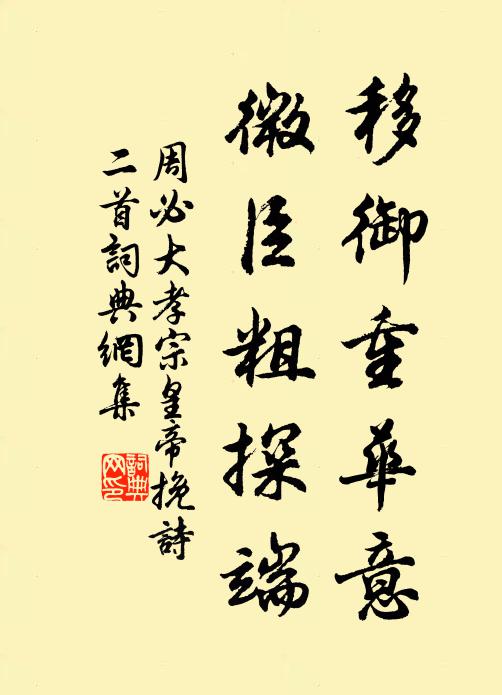 移御重華意
微臣粗探端
周必大孝宗皇帝挽詩
二首詞典網集
詞典網印